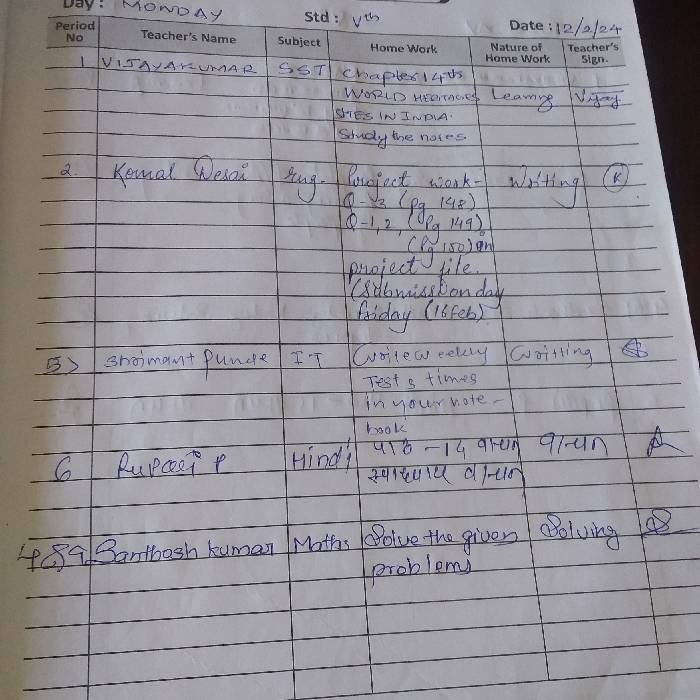 Day : MONDAY Std : Vth Date : 12/2/24
Period No Teacher's Name Subject Home Work Nature of Home Work Teacher's Sign.
1 VIJAYAKUMAR SST Chapter 14th
WORLD HERITAGES Learning Vijay
SITES IN INDIA.
Study the notes
2. Komal Desai Eng- Project work- Writing K
Q-3 (Pg 148)
Q-1,2, (Pg 149)
(Pg 150) in
project file.
(Submission day
friday (16 feb)
5> Shrimant Punde IT Write weekly Writting
Test 3 times
in your note-
book
6 Rupali P Hindi पाठ - 14 वाचन वाचन
स्वाध्याय वाचन
4&9 Santhosh kumar Maths Solve the given Solving
problems